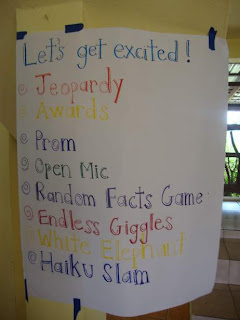 Let's get excited!
Jeopardy
Awards
Prom
Open Mic
Random Facts Game
Endless Giggles
White Elephant
Haiku Slam